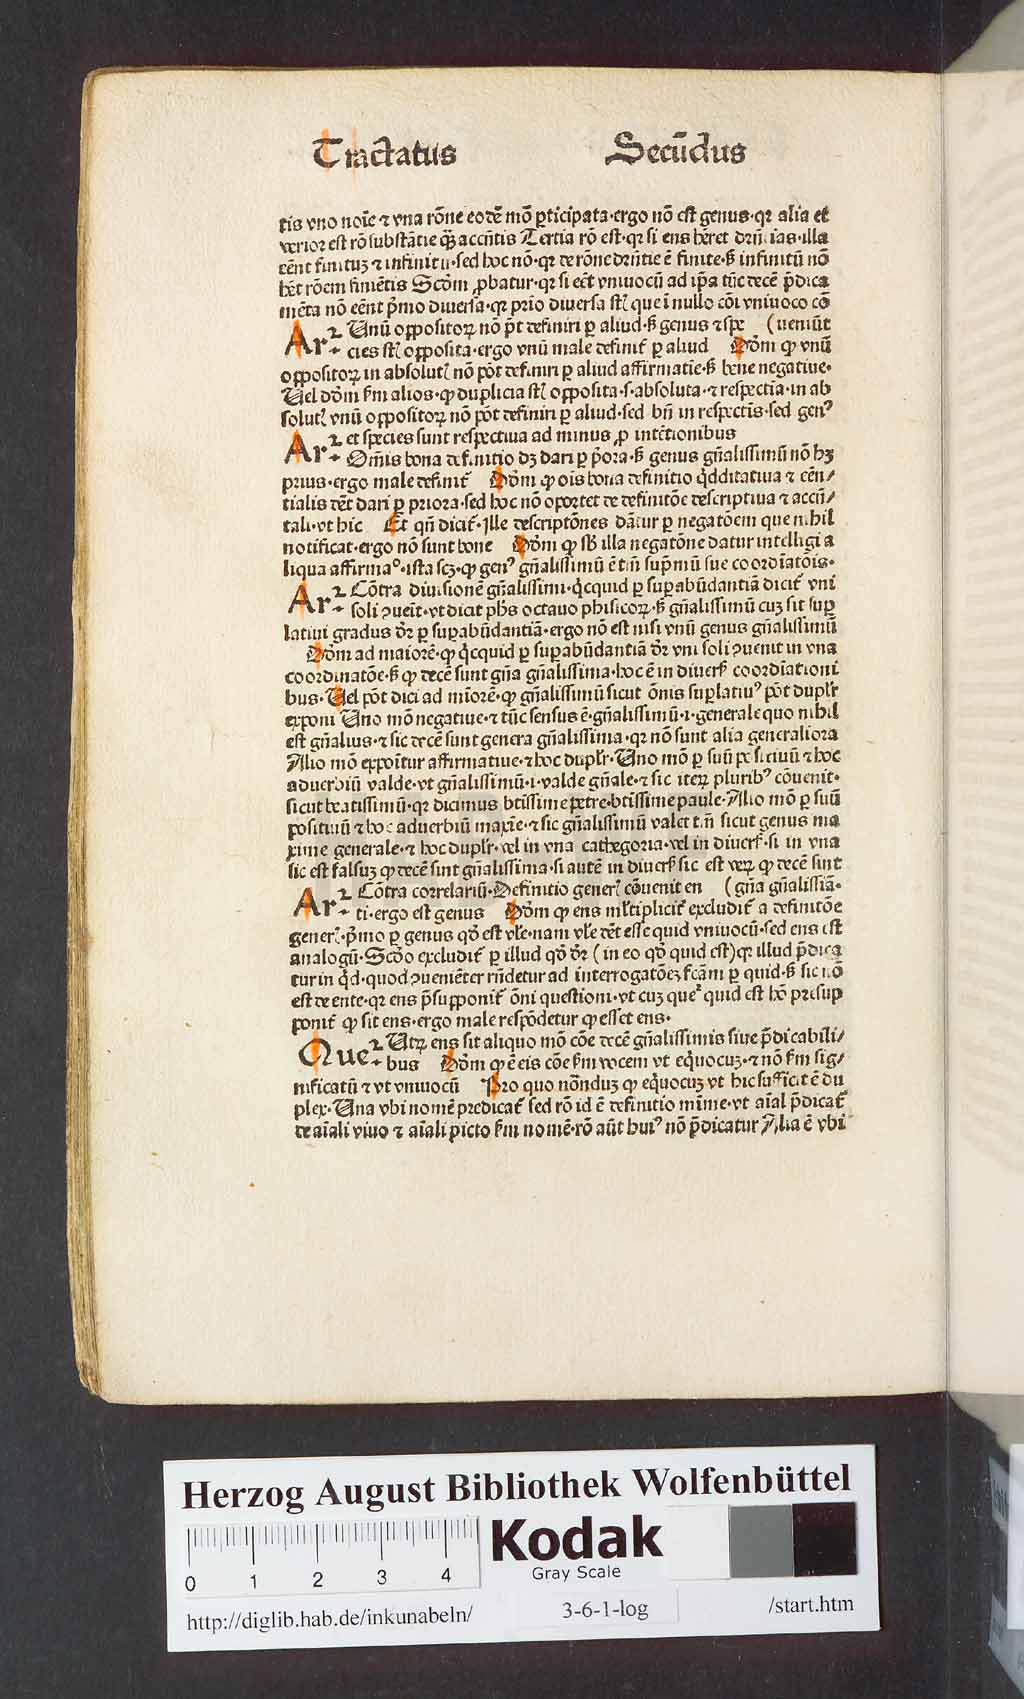 Tractatus Secūdus
tis vno noīe ⁊ vna rōne eodē mō ꝑticipata·ergo nō est genus·qꝛ alia et
verior est rō substātie ꝙ̄ accn̄tis Tertia rō est·qꝛ si ens hēret drn̄cias·illa
cēnt finituꝫ ⁊ infinitū·sed hoc nō·qꝛ de rōne drn̄tie ē finite·ꝫ infinitū nō
hēt rōem finiētis Scd̄m ꝓbatur·qꝛ si eēt vniuocū ad ip̄a tūc decē p̄dica
mēta nō eēnt p̄mo diuersa·qꝛ prīo diuersa st̄ que ī nullo cōi vniuoco cō
Arꝛ· Unū oppositoꝝ nō pt̄ definiri ꝑ aliud·ꝫ genus ⁊ spe (ueniūt
cies st̄ opposita·ergo vnū male definit̄ ꝑ aliud Dōm ꝙ vnū
oppositoꝝ in absolut̄ nō pōt definiri ꝑ aliud affirmatīe·ꝫ bene negatiue·
Uel dōm fm alios·ꝙ duplicia st̄ opposita·s·absoluta·⁊ respectīa·in ab
solut̄ vnū oppositoꝝ nō pōt definiri ꝑ aliud·sed bn̄ in respectīs·sed genꝰ
Arꝛ· et species sunt respectiua ad minus ꝓ intētionibus
Om̄is bona definitio dꝫ dari ꝑ p̄ora·ꝫ genus gn̄alissimū nō hꝫ
prius·ergo male definit̄ Dōm ꝙ oīs bona definitio q̇dditatiua ⁊ cēn/
tialis dēt dari ꝑ priora·sed hoc nō oportet de definitōe descriptiua ⁊ accn̄/
tali·vt hic Et qn̄ dicit̄·Ille descriptōnes dātur ꝑ negatōem que nihil
notificat·ergo nō sunt bone Dōm ꝙ sb̄ illa negatōne datur intelligi a
liqua affirmaᵒ·ista scꝫ·ꝙ genꝰ gn̄alissimū ē tīn supmū sue coordīatōis·
Arꝛ· Cōtra diuisionē gn̄alissimi·q̇cquid ꝑ supabūdantiā dicit̄ vni
soli ꝯueīt·vt dicit ph̄s octauo phisicoꝝ·ꝫ gn̄alissimū cuꝫ sit suꝑ
latiui gradus d̄r ꝑ supabūdantiā·ergo nō est nisi vnū genus gn̄alissimū
Dōm ad maiorē·ꝙ q̇cquid ꝑ supabūdantiā d̄r vni soli ꝯuenit in vna
coordinatōe·ꝫ ꝙ decē sunt gn̄a gn̄alissima·hoc ē in diuerſ̄ coordīationi
bus·Uel pōt dici ad mīorē·ꝙ gn̄alissimū sicut ōnis suplatiuꝰ pōt dupl̄r
exponi Uno mō negatiue·⁊ tūc sensus ē·gn̄alissimū·i·generale quo nihil
est gn̄alius·⁊ sic decē sunt genera gn̄alissima·qꝛ nō sunt alia generaliora
Alio mō exponīur affirmatiue·⁊ hoc dupl̄r·Uno mō ꝑ suū positiuū ⁊ hoc
aduerbiū valde·vt gn̄alissimū·i·valde gn̄ale·⁊ sic iteꝝ pluribꝰ cōuenit·
sicut beatissimū·qꝛ dicimus btīssime petre·btīssime paule·Alio mō ꝑ suū
positiuū ⁊ hoc aduerbiū maxīe·⁊ sic gn̄alissimū valet tīn sicut genus ma
xime generale·⁊ hoc dupl̄r·vel in vna cathegoria·vel in diuerſ̄·si in vna
sic est falsuꝫ ꝙ decē sint gn̄alissima·si autē in diuerſ̄ sic est veꝝ ꝙ decē sint
Arꝛ· Cōtra correlariū·Definitio gener̄ cōuenit en (gn̄a gn̄alissīa·
ti·ergo est genus Dōm ꝙ ens ml̄tiplicit̄ excludit̄ a definitōe
gener̄·p̄mo ꝑ genus qd̄ est vl̄e·nam vl̄e dēt esse quid vniuocū·sed ens est
analogū·Scd̄o excludit̄ ꝑ illud qd̄ d̄r (in eo qd̄ quid est) qꝛ illud p̄dica
tur in q̇d·quod ꝯueniēter rn̄detur ad interrogatōeꝫ fcām ꝑ quid·ꝫ sic nō
est de ente·qꝛ ens p̄supponit̄ ōni questioni·vt cuꝫ querit̄ quid est hō presup
ponit̄ ꝙ sit ens·ergo male respōdetur ꝙ esset ens·
Queꝛ· Utꝝ ens sit aliquo mō cōe decē gn̄alissimis siue p̄dicabili/
bus Dōm ꝙ ē eis cōe fm vocem vt eq̇uocuꝫ·⁊ nō fm sig/
nificatū ⁊ vt vniuocū Pro quo nōnduꝫ ꝙ eq̇uocuꝫ vt hic sufficit ē du
plex·Una vbi nomē predicat̄ sed rō id ē definitio mīme·vt aīal p̄dicat̄
de aīali viuo ⁊ aīali picto fm nomē·rō aūt huiꝰ nō p̄dicatur Alia ē vbi
Herzog August Bibliothek Wolfenbüttel
Kodak
Gray Scale
0 1 2 3 4
http://diglib.hab.de/inkunabeln/ 3-6-1-log /start.htm